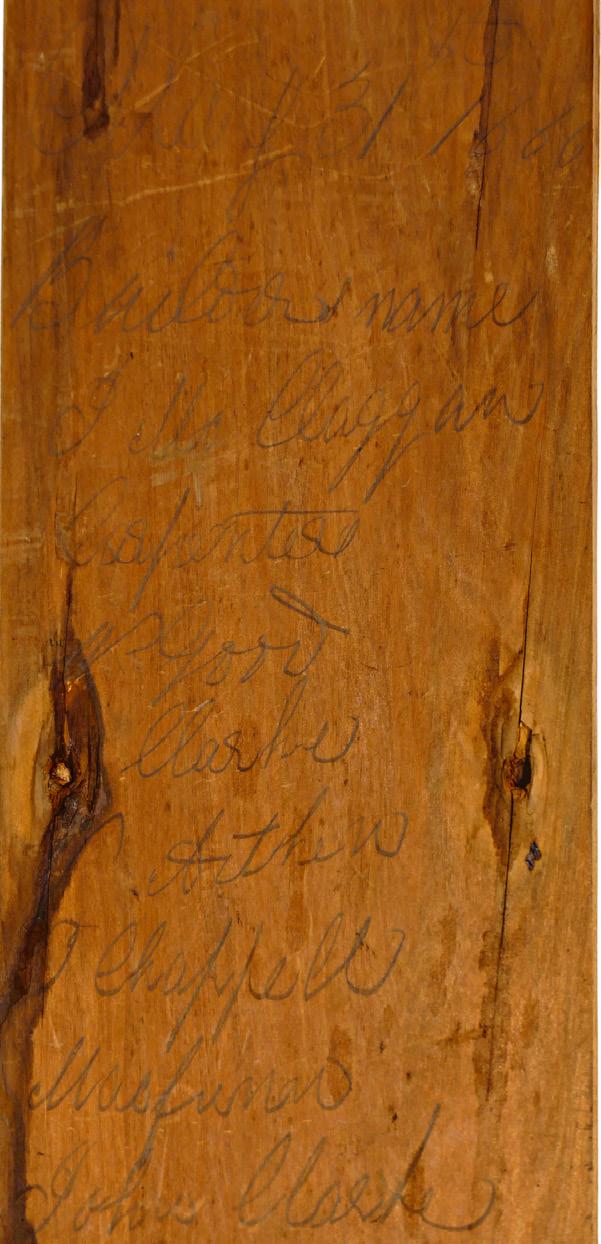 May 31 1866
Builders name
J Mc Claggan
Carpenters
Good
Clarke
Arther
J Chappell
John Clarke